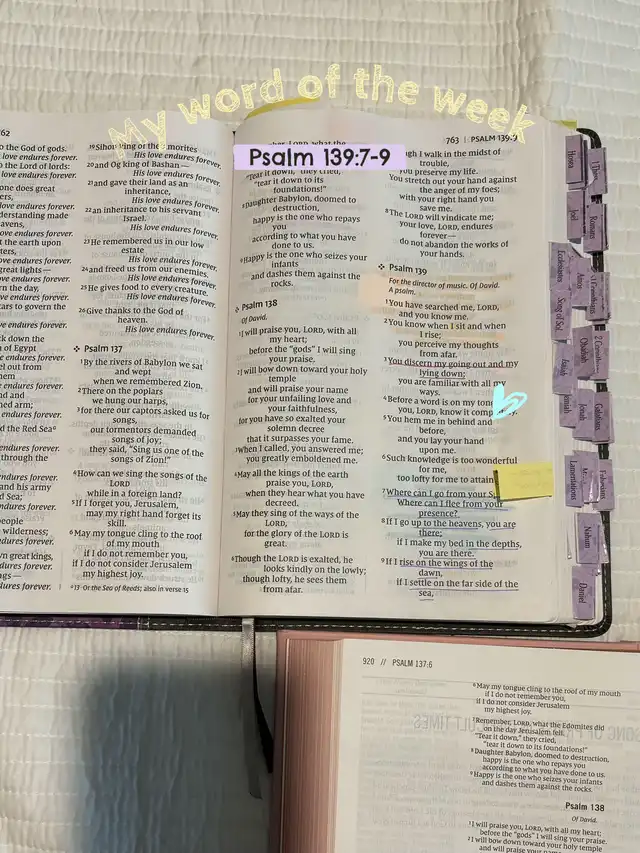 My word of the week
Psalm 139:7-9
to the God of gods.
love endures forever.
to the Lord of lords:
love endures forever.
one does great
love endures forever.
love endures forever.
the earth upon
love endures forever.
great lights—
love endures forever.
love endures forever.
love endures forever.
of Egypt
love endures forever.
love endures forever.
the Red Seaᵃ
love endures forever.
through the
love endures forever.
and his army
Sea;
love endures forever.
people
wilderness;
love endures forever.
great kings,
love endures forever.
kings—
endures forever.
19 Sihon king of the Amorites
His love endures forever.
20 and Og king of Bashan—
His love endures forever.
21 and gave their land as an
inheritance,
His love endures forever.
22 an inheritance to his servant
Israel.
His love endures forever.
23 He remembered us in our low
estate
His love endures forever.
24 and freed us from our enemies.
His love endures forever.
25 He gives food to every creature.
His love endures forever.
26 Give thanks to the God of
heaven.
His love endures forever.
Psalm 137
1 By the rivers of Babylon we sat
and wept
when we remembered Zion.
2 There on the poplars
we hung our harps,
3 for there our captors asked us for
songs,
our tormentors demanded
songs of joy;
they said, "Sing us one of the
songs of Zion!"
4 How can we sing the songs of the
LORD
while in a foreign land?
5 If I forget you, Jerusalem,
may my right hand forget its
skill.
6 May my tongue cling to the roof
of my mouth
if I do not remember you,
if I do not consider Jerusalem
my highest joy.
ᵃ 13 Or the Sea of Reeds; also in verse 15
LORD, what the
"Tear it down," they cried,
"tear it down to its
foundations!"
8 Daughter Babylon, doomed to
destruction,
happy is the one who repays
you
according to what you have
done to us.
9 Happy is the one who seizes your
infants
and dashes them against the
rocks.
Psalm 138
Of David.
1 I will praise you, LORD, with all
my heart;
before the "gods" I will sing
your praise.
2 I will bow down toward your holy
temple
and will praise your name
for your unfailing love and
your faithfulness,
for you have so exalted your
solemn decree
that it surpasses your fame.
3 When I called, you answered me;
you greatly emboldened me.
4 May all the kings of the earth
praise you, LORD,
when they hear what you have
decreed.
5 May they sing of the ways of the
LORD,
for the glory of the LORD is
great.
6 Though the LORD is exalted, he
looks kindly on the lowly;
though lofty, he sees them
from afar.
763 | PSALM 139:9
I walk in the midst of
trouble,
you preserve my life.
You stretch out your hand against
the anger of my foes;
with your right hand you
save me.
8 The LORD will vindicate me;
your love, LORD, endures
forever—
do not abandon the works of
your hands.
Psalm 139
For the director of music. Of David.
A psalm.
1 You have searched me, LORD,
and you know me.
2 You know when I sit and when
I rise;
you perceive my thoughts
from afar.
3 You discern my going out and my
lying down;
you are familiar with all my
ways.
4 Before a word is on my
you, LORD, know it
5 You hem me in behind and
before,
and you lay your hand
upon me.
6 Such knowledge is too wonderful
for me,
too lofty for me to attain.
7 Where can I go from your
Where can I flee from your
presence?
8 If I go up to the heavens, you are
there;
if I make my bed in the depths,
you are there.
9 If I rise on the wings of the
dawn,
if I settle on the far side of the
sea,
Hosea
Joel
Romans
Ecclesiastes
Song of Sol.
Amos
1 Corinthians
Obadiah
Isaiah
Jonah
Galatians
Lamentations
Ephesians
Nahum
Daniel
920 // PSALM 137:6
6 May my tongue cling to the roof of my mouth
if I do not remember you,
if I do not consider Jerusalem
my highest joy.
7 Remember, LORD, what the Edomites did
on the day Jerusalem fell.
"Tear it down," they cried,
"tear it down to its foundations!"
8 Daughter Babylon, doomed to destruction,
happy is the one who repays you
according to what you have done to us.
9 Happy is the one who seizes your infants
and dashes them against the rocks.
Psalm 138
Of David.
1 I will praise you, LORD, with all my heart;
before the "gods" I will sing your praise.
2 I will bow down toward your holy temple
and will praise your name